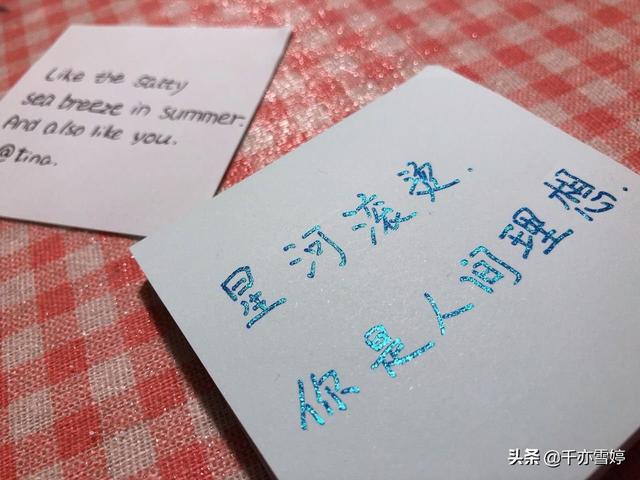 Like the salty
sea breeze in summer.
And also like you.
@tina.
星河滚烫.
你是人间理想.
头条 @千亦雪婷